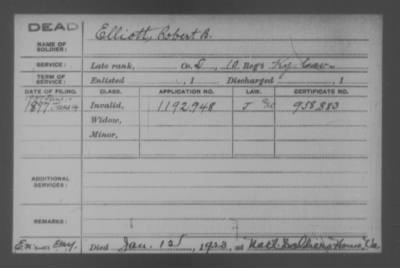 DEAD
NAME OF SOLDIER: Elliott, Robert B.
SERVICE: Late rank, Co. D, 10 Reg't Ky. Cav.
TERM OF SERVICE: Enlisted , 1 Discharged , 1
DATE OF FILING. CLASS. APPLICATION NO. LAW. CERTIFICATE NO.
1897 Invalid, 1192.948 J 958.883
Widow,
Minor,
ADDITIONAL SERVICES:
REMARKS:
Died Jan. 12, 1923, at Natl Soldiers Home